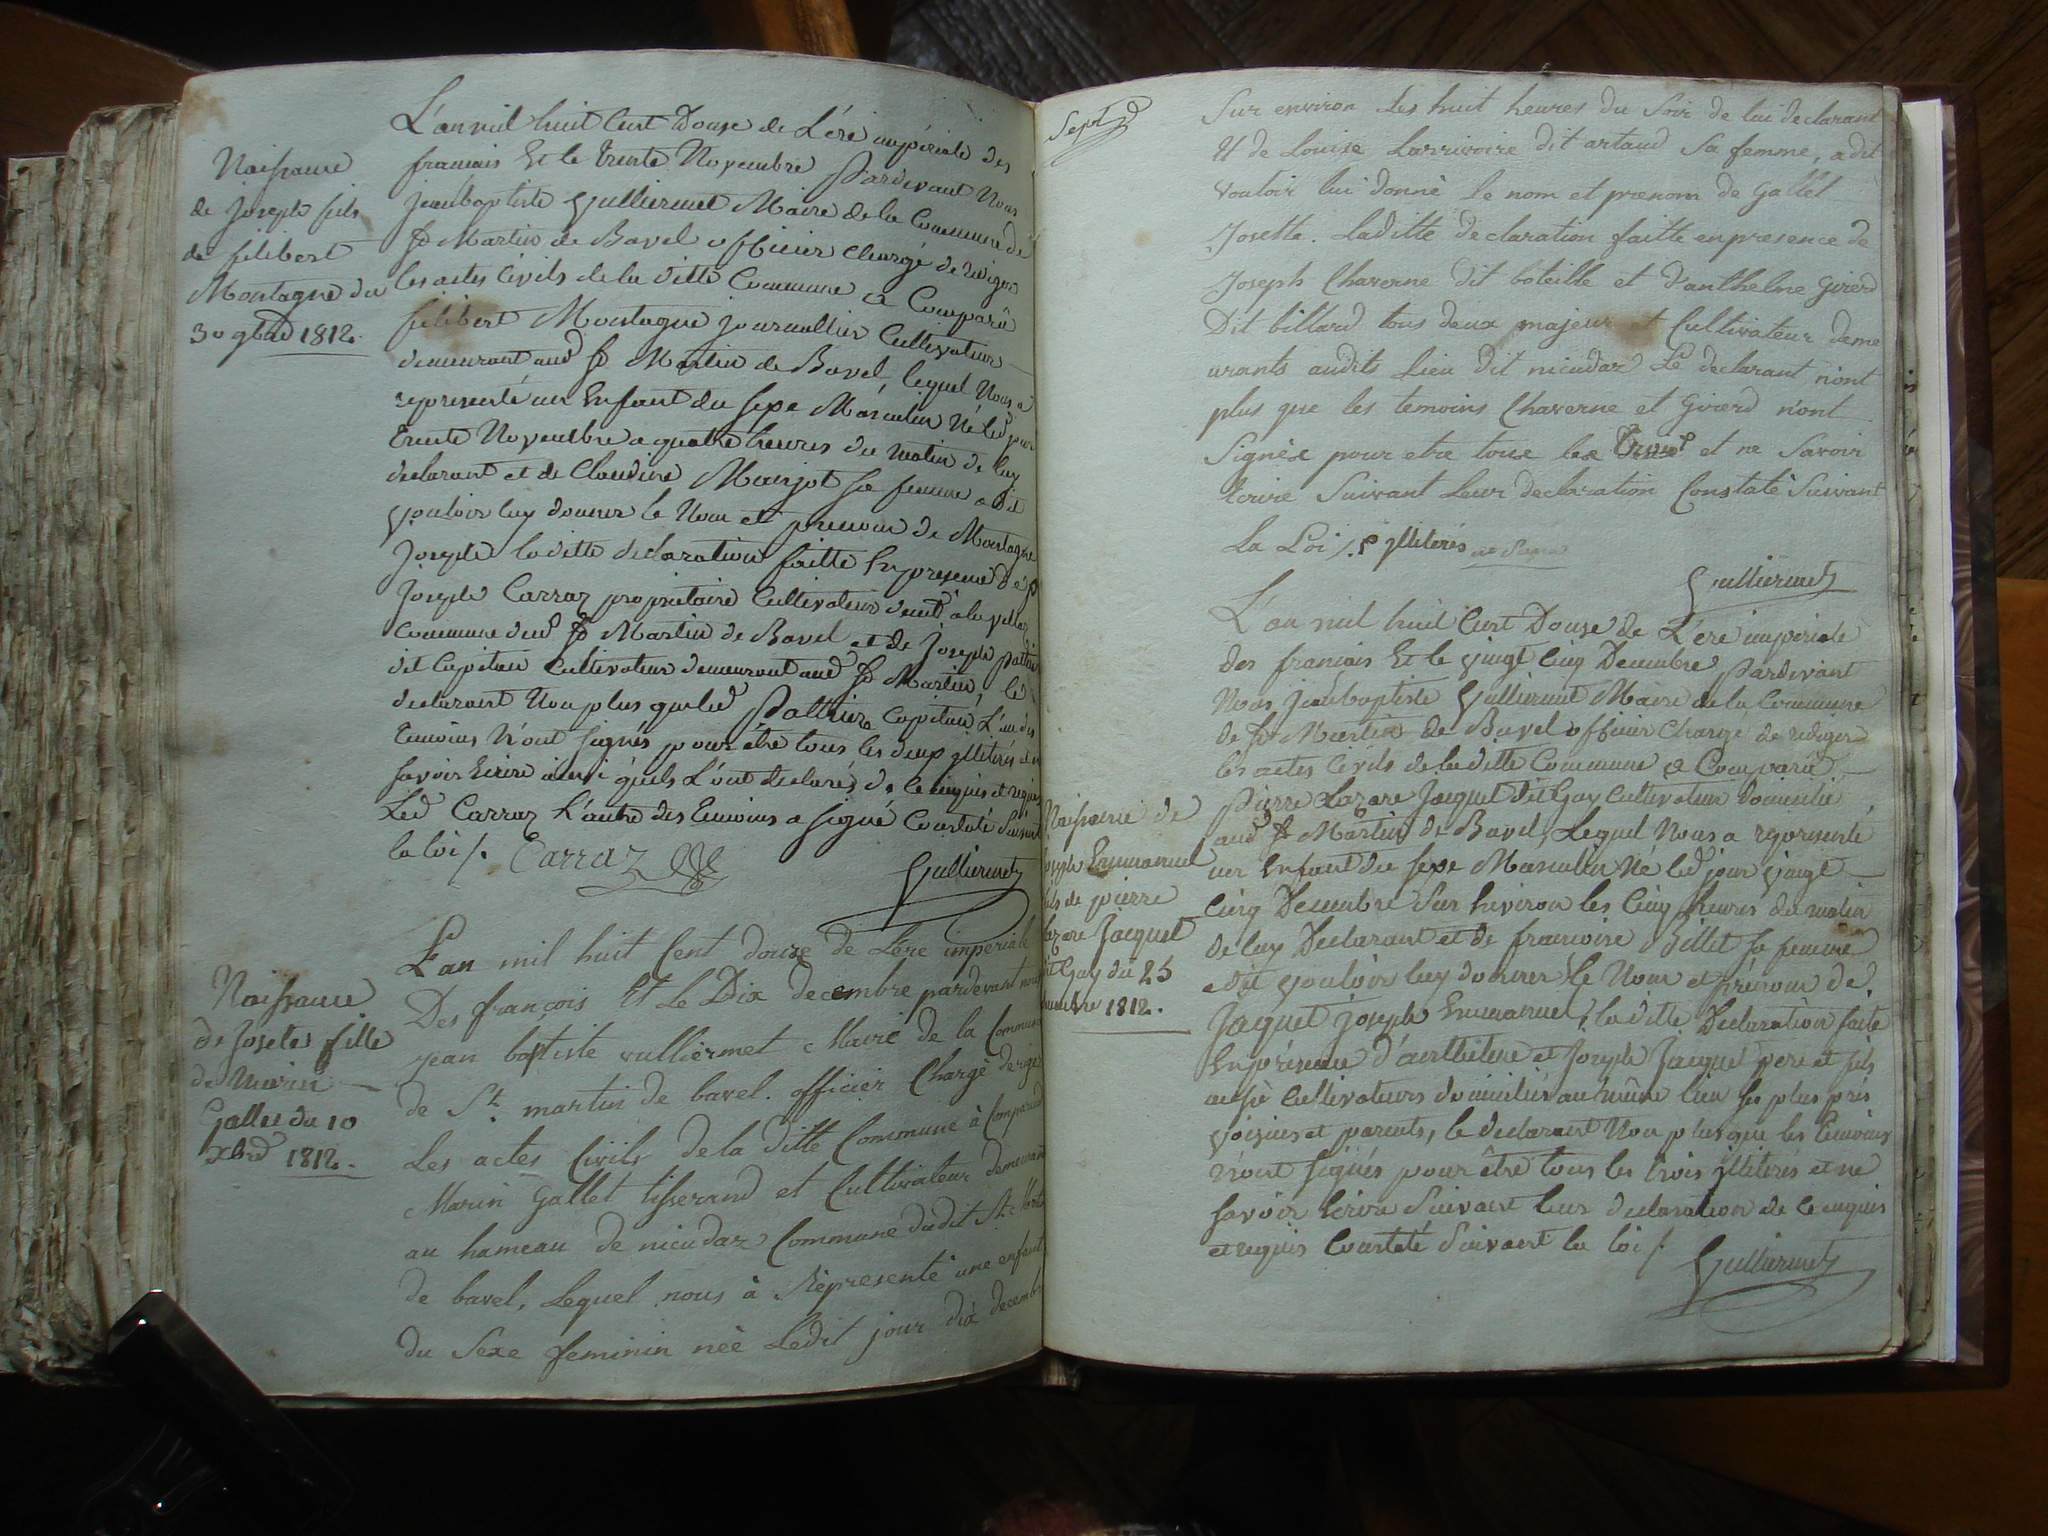 Naissance
de Joseph fils
de filibert
Montagne du
30 9bre 1812.
L'an mil huit Cent Douze de L'ére impériale des
francais Et le trente Novembre Pardevant Nous
Jeanbaptiste Vulliermet Maire de la Commune de
St Martin de Bavel officier chargé de rédiger
les actes Civils de la ditte Commune a Comparû
filibert Montagne journallier Cultivateur
demeurant aud St Martin de Bavel, lequel Nous a
représenté un Enfant du sexe Masculin Né led jour
trente Novembre a quatre heures du matin de luy
declarant et de Claudine Manjot sa femme a dit
Vouloir luy donner le Nom et prenom de Montagne
Joseph la ditte declaration faitte En presence de
Joseph Carraz proprietaire Cultivateur demt à la
Commune dud St Martin de Bavel et de Joseph
dit Capitan Cultivateur demeurant aud St Martin, le
declarant Non plus que led Capitan L'un des
temoins N'ont signés pour être tous les deux illiterés et ne
savoir Ecrire ainsi qu'ils L'ont declarés de ce enquis et requis
Led Carraz L'autre des temoins a signé Constaté Suivant
la loi /. Carraz
Vulliermet
Naissance
de Josete fille
de Marin
Gallet du 10
Xbre 1812.
L'an mil huit Cent douze de L'ére imperiale
Des françois Et Le Dix decembre pardevant nous
jean baptiste vulliermet Maire de la Commune
de St martin de bavel. officier Chargé de
Les actes Civils de la ditte Commune à Comparu
Marin Gallet tisserand et Cultivateur demeurant
au hameau de nicudaz Commune dudit St Martin
de bavel, Lequel nous à Représenté une enfant
du Sexe feminin née Ledit jour dix decembre
Sur environ Les huit heures du Soir de lui declarant
Et de Louise Larrivoire dit artaud Sa femme, a dit
vouloir lui donné le nom et prenom de Gallet
Josette. Laditte declaration faitte en presence de
Joseph Chaverne dit boteille et d'anthelme Girerd
Dit billard tous deux majeur et Cultivateur deme
urants audits Lieu dit nicudaz Le declarant n'ont
plus que les temoins Chaverne et Girerd n'ont
Signés pour etre tous les et ne Savoir
Ecrire Suivant Leur declaration Constaté Suivant
La Loi /. illiterés
Vulliermet
Naissance de
Joseph Emmanuel
fils de pierre
Lazare Jacquet
dit Gay du 25
decembre 1812.
L'an mil huit Cent Douze de L'ére impériale
des francais Et le Vingt Cinq Decembre Pardevant
Nous Jeanbaptiste Vulliermet Maire de la Commune
de St Martin de Bavel officier Chargé de rediger
les actes Civils de la ditte Commune a Comparû
Pierre Lazare Jacquet dit Gay Cultivateur Domicilié
aud St Martin de Bavel, Lequel Nous a représenté
un Enfant du sexe Masculin Né led jour Vingt
Cinq Decembre Sur les Cinq heures du matin
de luy Declarant et de francoise Billet sa femme
a dit Vouloir luy donner le Nom et prénom de
Jaquet Joseph Emmanuel, la ditte Declaration faite
En présence d'anthelme et Joseph Jacquet pere et fils
aussi Cultivateurs domiciliés au même lieu ses plus près
Voisins et parents, le declarant Non plus que les temoins
N'ont signés pour être tous les trois illiterés et ne
savoir Ecrire Suivant leur declaration de ce enquis
et requis Constaté Suivant la loi /.
Vulliermet